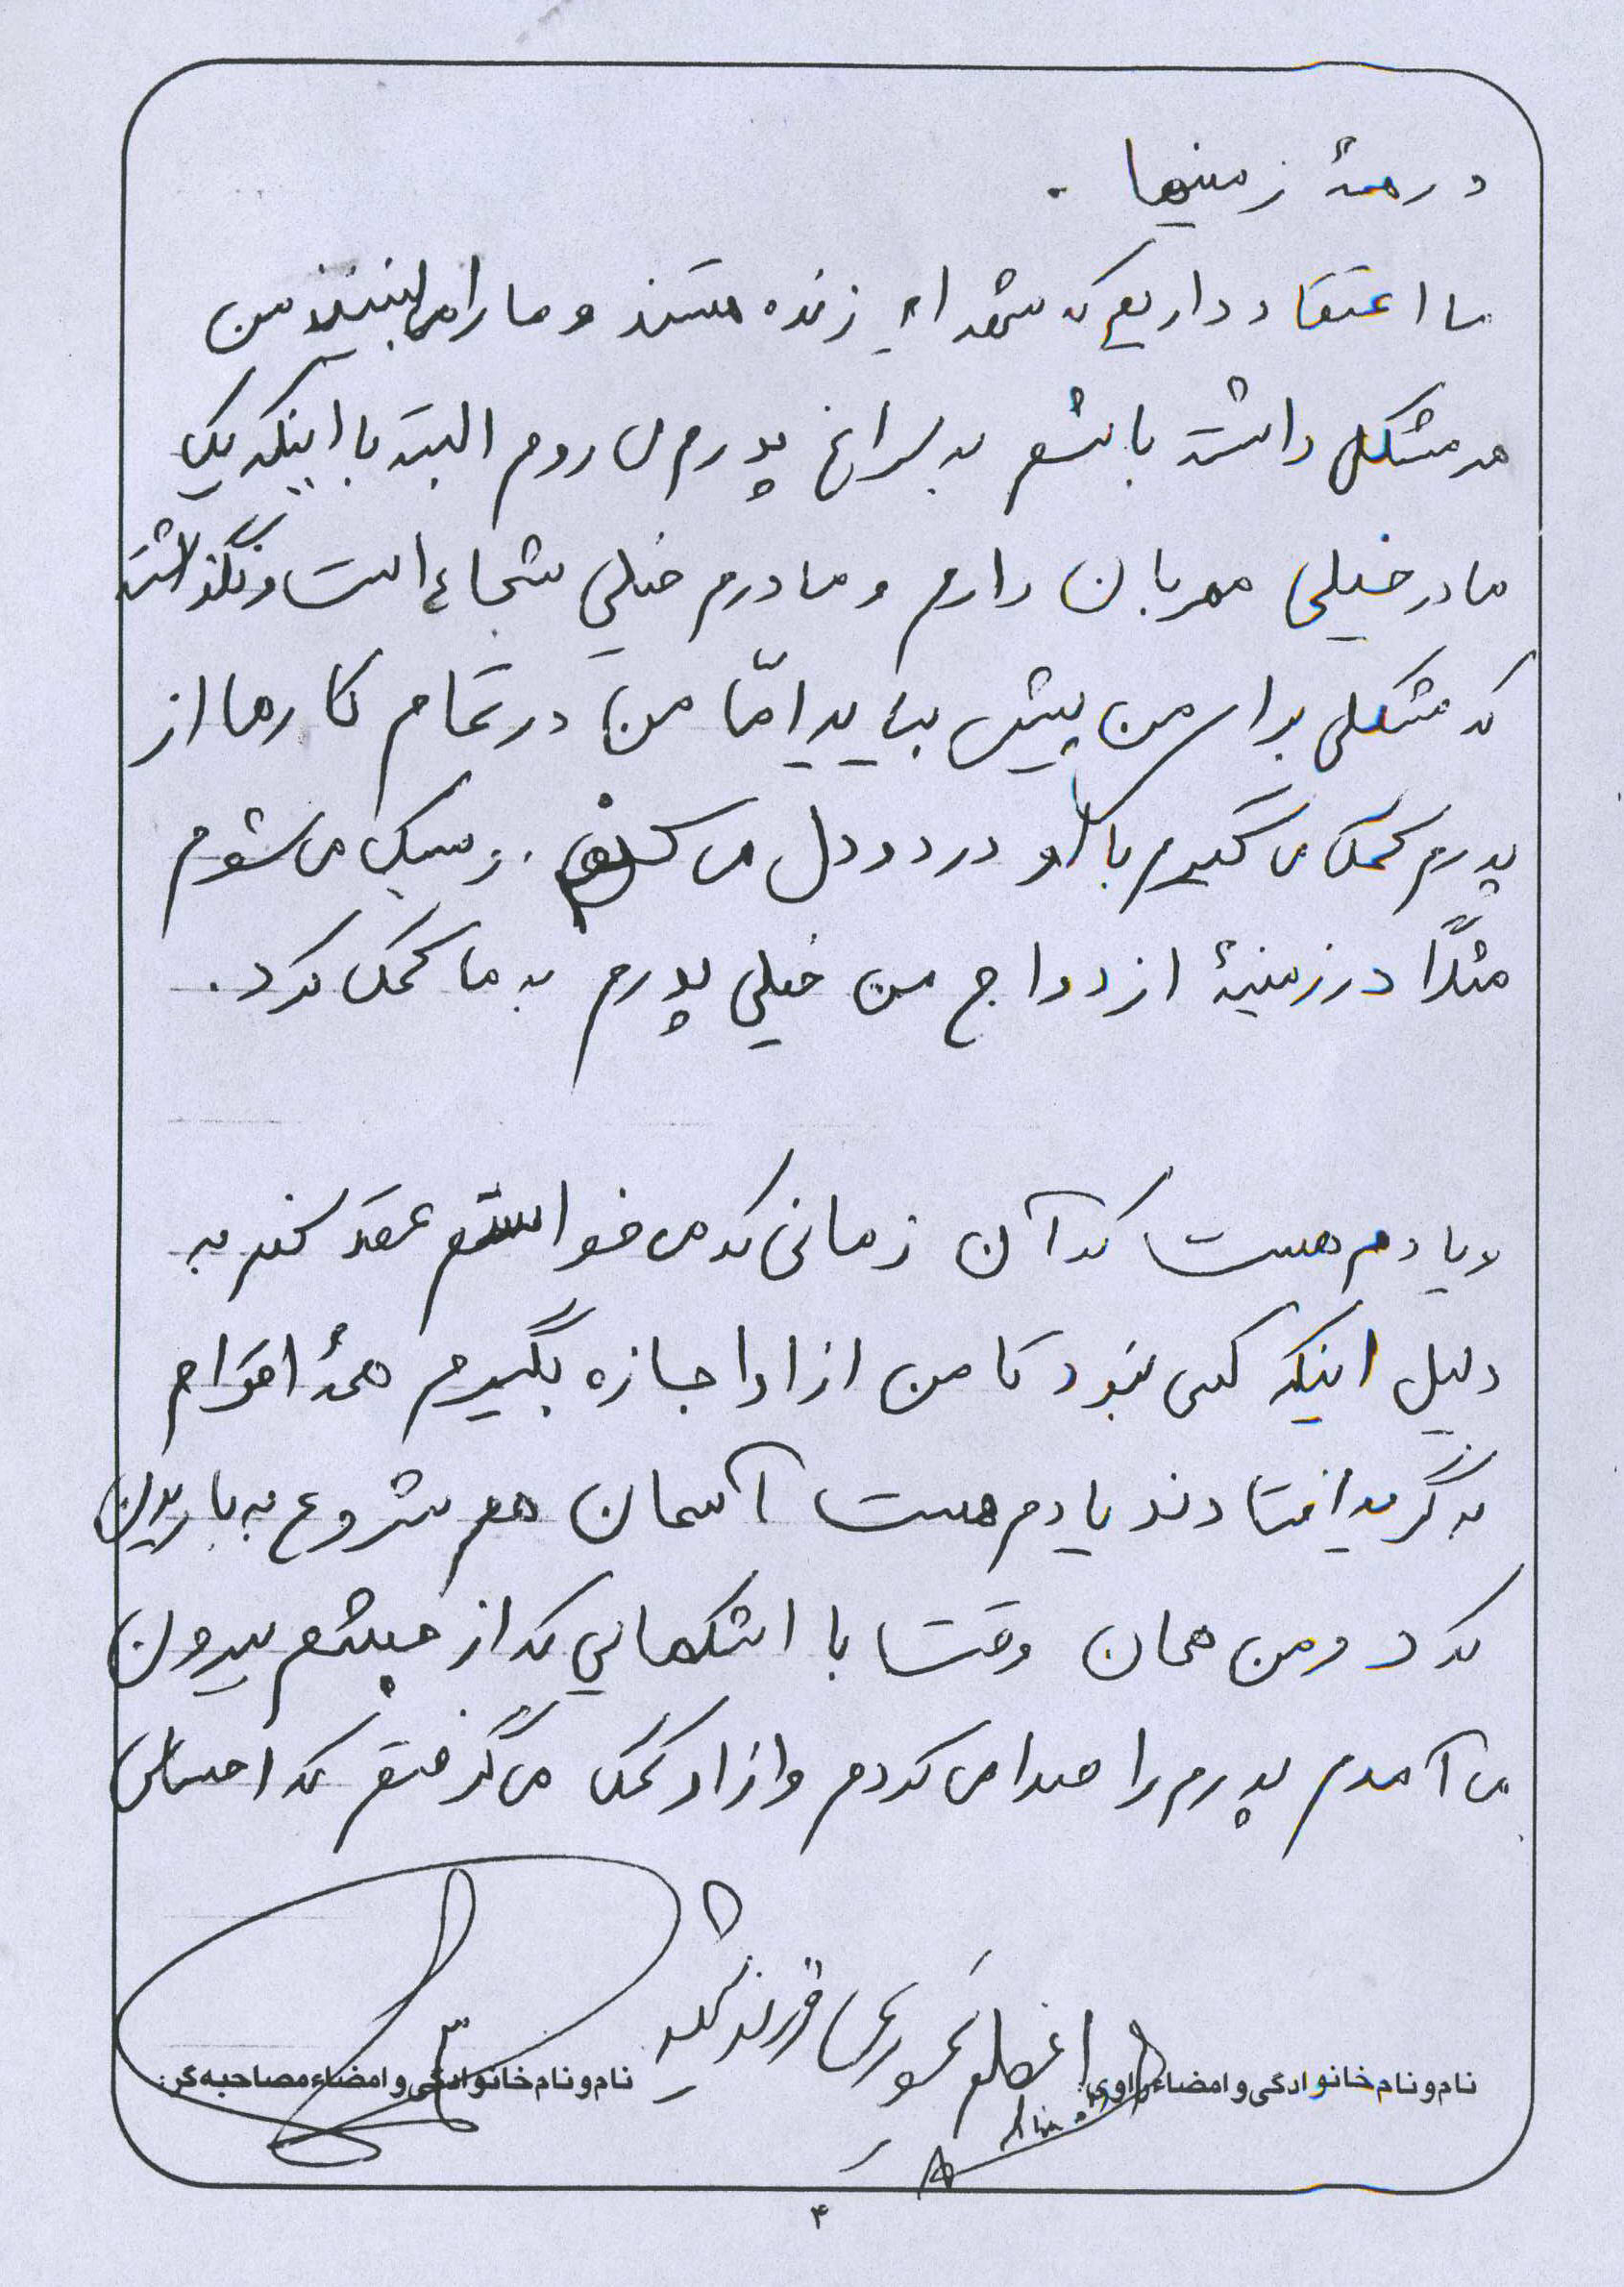 در همهٔ زمینها .
ما اعتقاد داریم که شهدا زنده هستند و ما را می‌بینند من
هر مشکلی داشته باشم به سراغ پدرم می روم البته با اینکه یک
مادر خیلی مهربان دارم و مادرم خیلی شجاع است و نگذاشته
که مشکلی برای من پیش بیاید امّا من در تمام کارها از
پدرم کمک می گیرم با او درد و دل می کنم . و سبک می شوم
مثلاً در زمینهٔ ازدواج من خیلی پدرم به ما کمک کرد .
و یادم هست که آن زمانی که می خواستم عقد کنم به
دلیل اینکه کسی نبود تا من از او اجازه بگیرم همهٔ اقوام
به گریه افتادند یادم هست آسمان هم شروع به باریدن
کرد و من همان وقت با اشکهایی که از چشم بیرون
می آمدم پدرم را صدا می کردم و از او کمک می گرفتم که احساس
نام و نام خانوادگی و امضاء راوی: اعظم فرزند شهید
نام و نام خانوادگی و امضاء مصاحبه‌گر:
۴